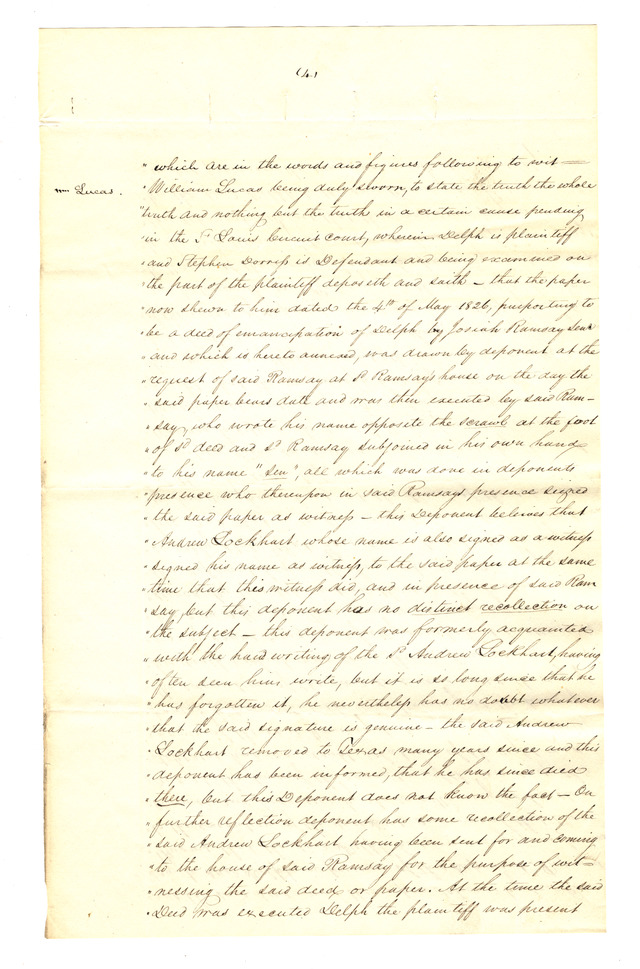 (4)
" which are in the words and figures following to wit =
Wm Lucas.
" William Lucas being duly sworn, to state the truth the whole
" truth and nothing but the truth in a certain cause pending
" in the St Louis Circuit court, wherein Delph is plaintiff
" and Stephen Dorriss is Defendant and being examined on
" the part of the plaintiff deposeth and saith - that the paper
" now shewn to him dated the 4th of May 1826, purporting to
" be a deed of emancipation of Delph by Josiah Ramsay Senr
" and which is hereto annexed, was drawn by deponent at the
" request of said Ramsay at sd Ramsay's house on the day the
" said paper bears date and was then executed by said Ram-
" say, who wrote his name opposite the scrawl at the foot
" of sd deed and sd Ramsay subjoined in his own hand
" to his name "Sen", all which was done in deponents
" presence who thereupon in said Ramsays presence signed
" the said paper as witness - this Deponent believes that
" Andrew Lockhart whose name is also signed as a witness
" signed his name as witness, to the said paper at the same
" time that this witness did, and in presence of said Ram
" say, but this deponent has no distinct recollection on
" the subject - this deponent was formerly acquainted
" with the hand writing of the sd Andrew Lockhart, having
" often seen him write, but it is so long since that he
" has forgotten it, he nevertheless has no doubt whatever
" that the said signature is genuine - the said Andrew
" Lockhart removed to Texas many years since and this
" deponent has been informed, that he has since died
" there, but this Deponent does not know the fact - On
" further reflection deponent has some recollection of the
" said Andrew Lockhart having been sent for and coming
" to the house of said Ramsay for the purpose of wit=
" nessing the said deed or paper. At the time the said
" Deed was executed Delph the plaintiff was present